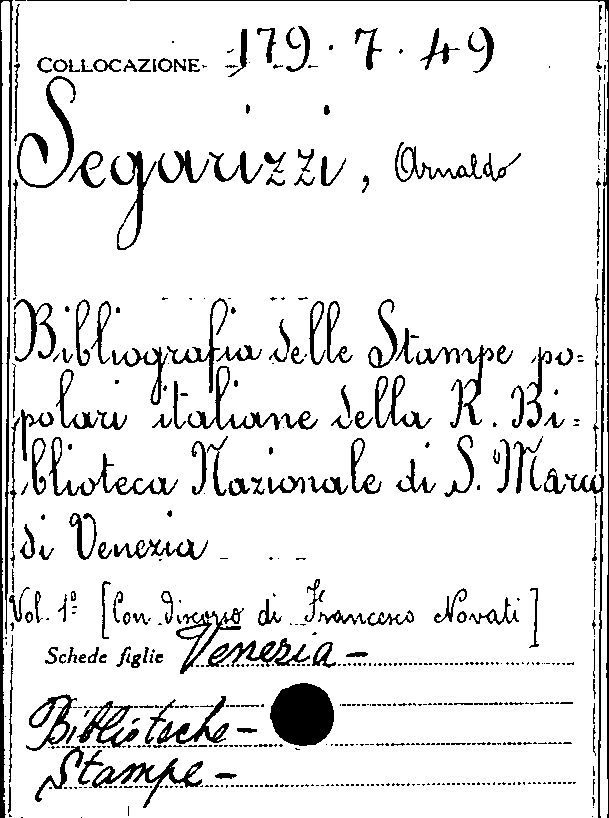 COLLOCAZIONE 179.7.49
Segarizzi, Arnaldo
Bibliografia delle Stampe po=
polari italiane della R. Bi=
blioteca Nazionale di S. Marco
di Venezia
Vol. 1º [Con discorso di Francesco Novati]
Schede figlie Venezia -
Biblioteche -
Stampe -